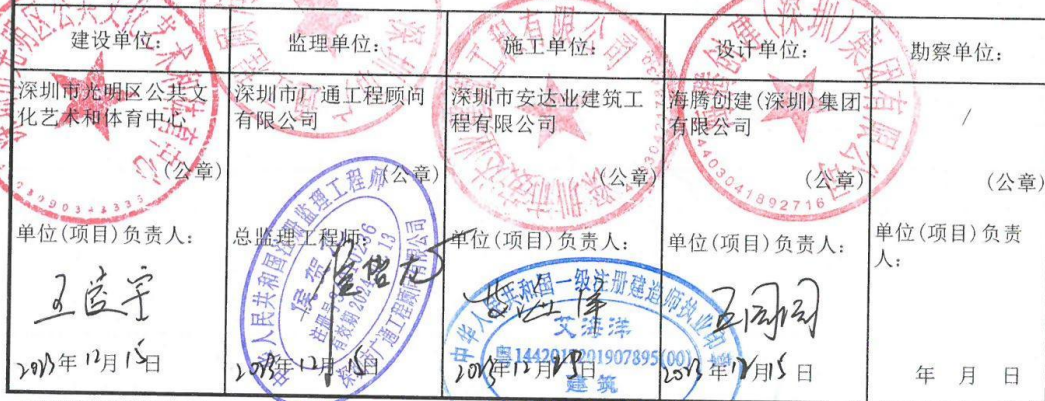 建设单位:
监理单位:
施工单位:
设计单位:
勘察单位:
深圳市光明区公共文
化艺术和体育中心
(公章)
深圳市广通工程顾问
有限公司
(公章)
深圳市安达业建筑工
程有限公司
(公章)
海腾创建(深圳)集团
有限公司
(公章)
/
(公章)
单位(项目)负责人:
2023年12月15日
总监理工程师:
2023年12月15日
单位(项目)负责人:
2023年12月15日
单位(项目)负责人:
2023年12月15日
单位(项目)负责
人:
年 月 日
中华人民共和国注册监理工程师
深圳市广通工程顾问有限公司
中华人民共和国一级注册建造师执业印章
艾海洋
建筑
4403041892716